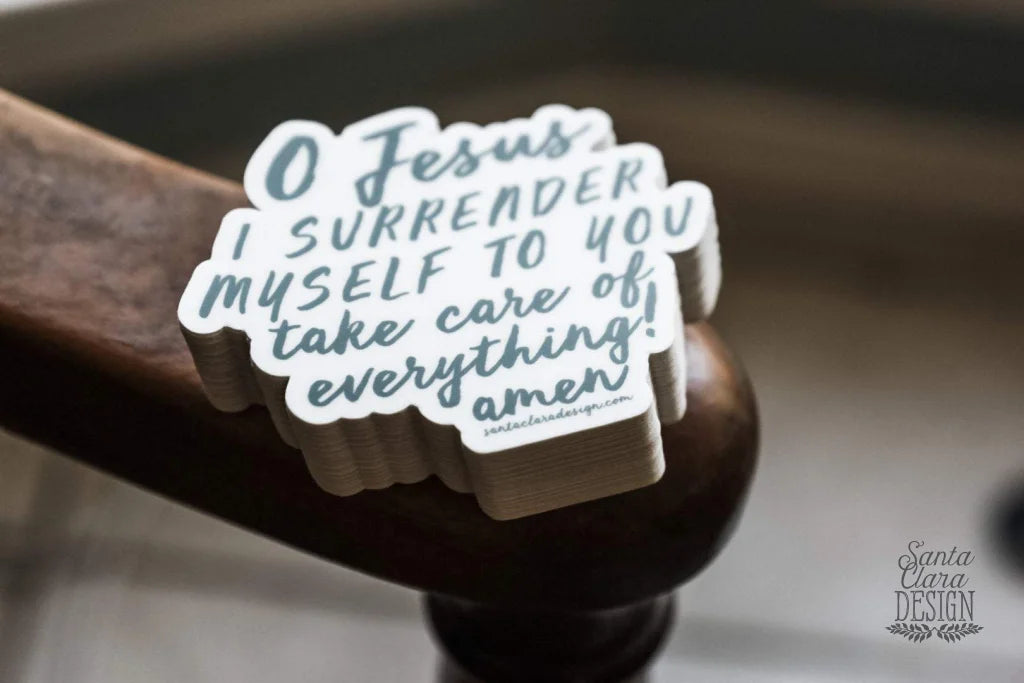 O Jesus
I SURRENDER
MYSELF TO YOU
take care of
everything!
amen
santaclaradesign.com
Santa
Clara
DESIGN